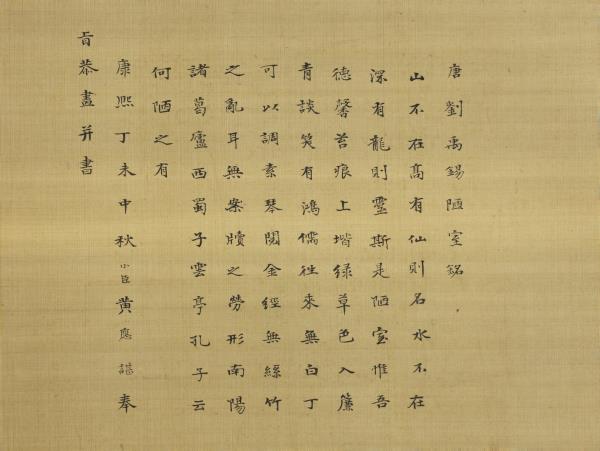 唐劉禹錫陋室銘
山不在高有仙則名水不在
深有龍則靈斯是陋室惟吾
德馨苔痕上堦緑草色入簾
青談笑有鴻儒往來無白丁
可以調素琴閱金經無絲竹
之亂耳無案牘之勞形南陽
諸葛廬西蜀子雲亭孔子云
何陋之有
康熙丁未中秋小臣黃應諶奉
旨恭畫并書